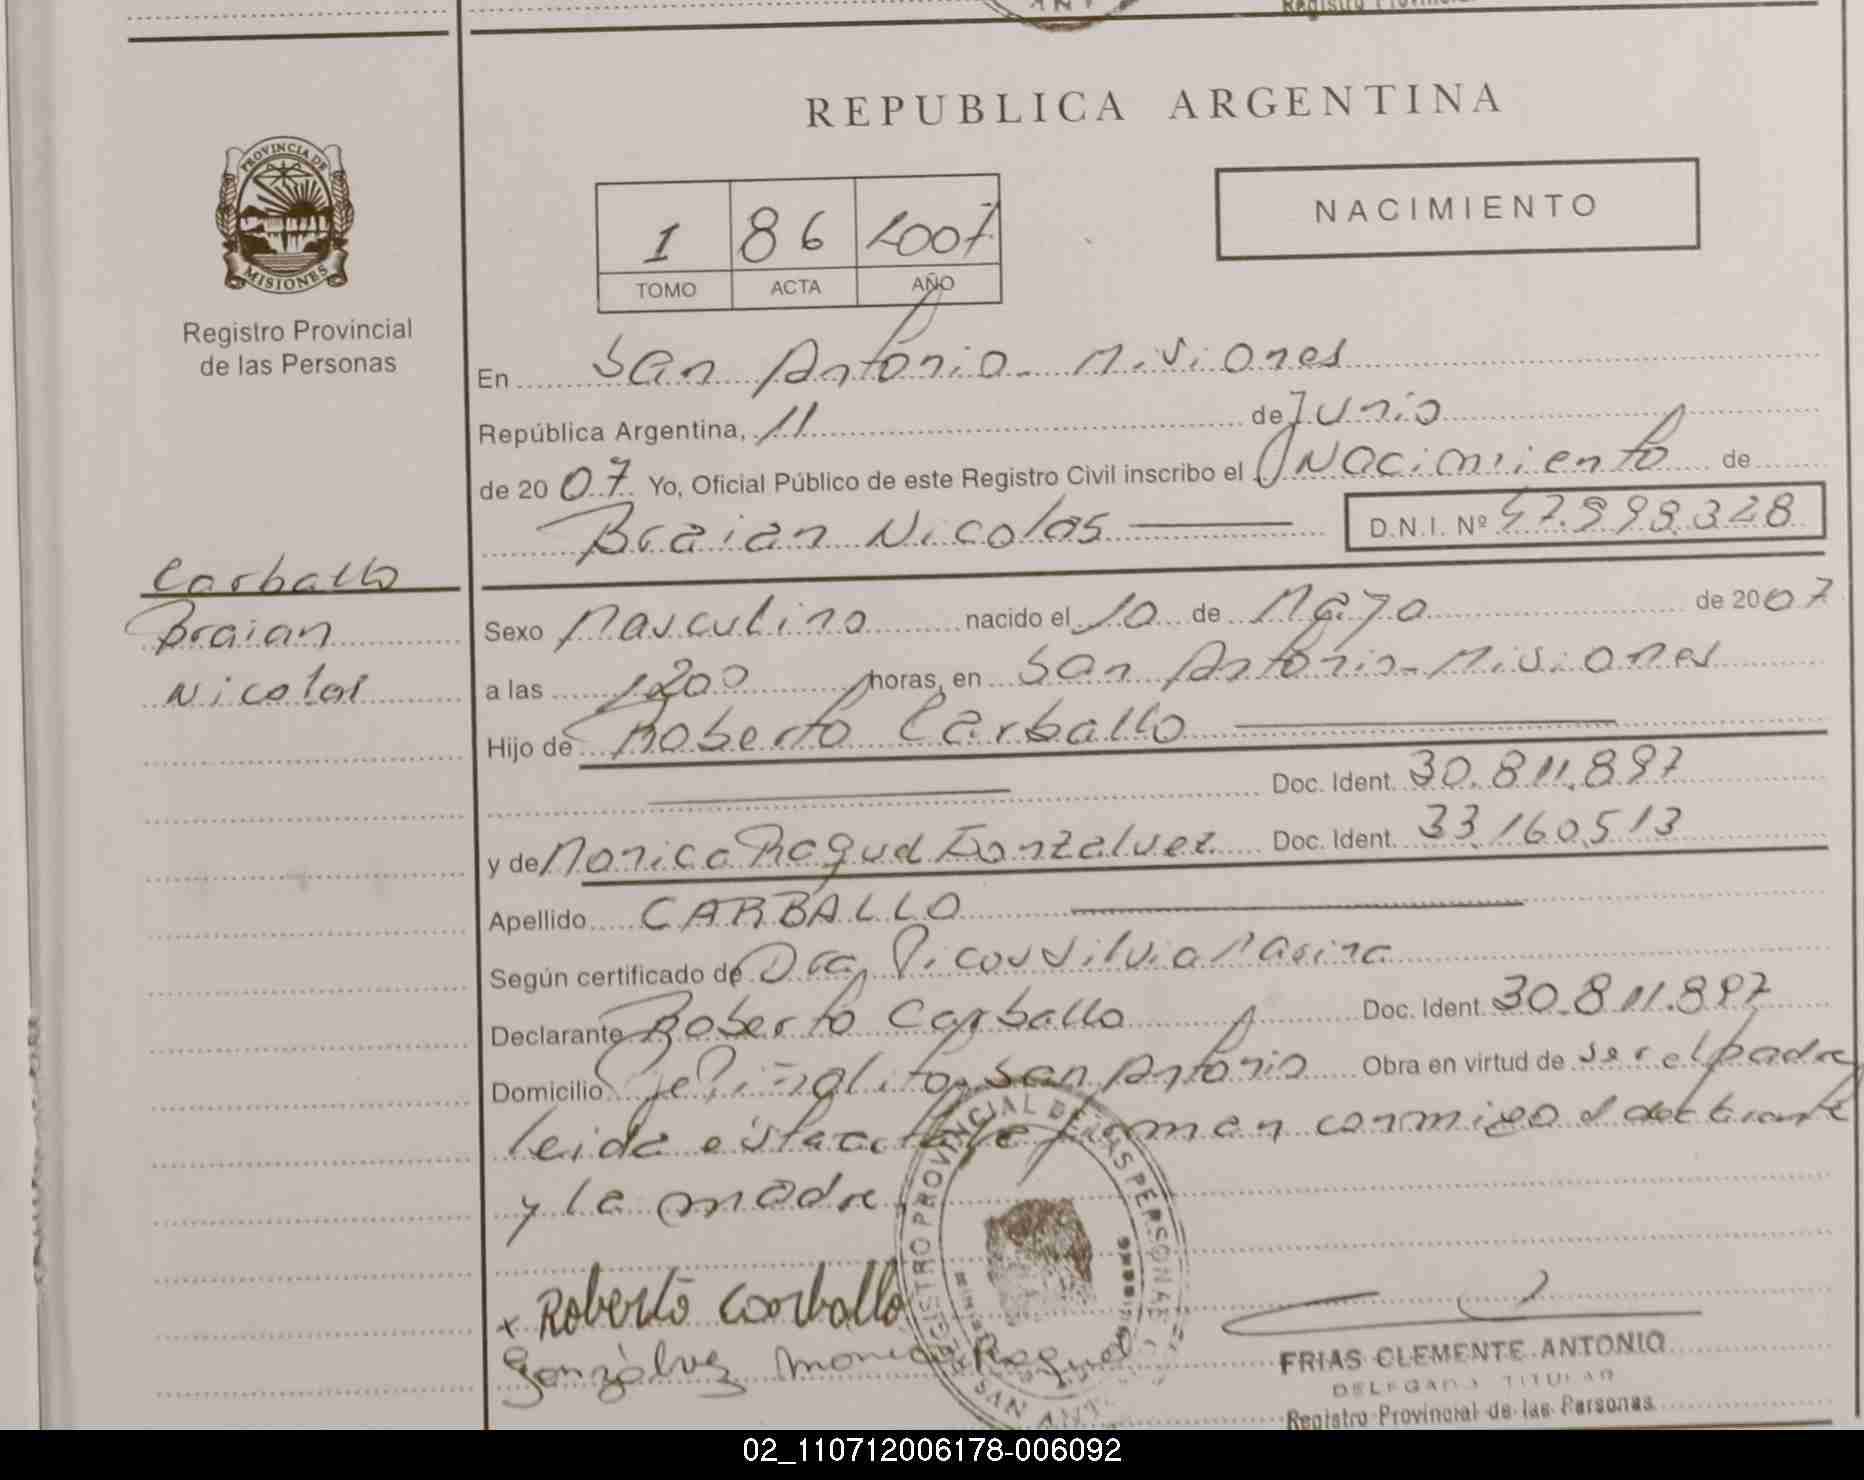 REPUBLICA ARGENTINA
PROVINCIA DE
MISIONES
Registro Provincial
de las Personas
NACIMIENTO
1 86 2007
TOMO ACTA AÑO
En San Antonio - Misiones
República Argentina, 11 de Junio
de 2007 Yo, Oficial Público de este Registro Civil inscribo el Nacimiento de
Braian Nicolas D.N.I. Nº 47.998.328
Carballo
Braian
Nicolas
Sexo Masculino nacido el 10 de Mayo de 2007
a las 1200 horas, en San Antonio - Misiones
Hijo de Roberto Carballo
Doc. Ident. 30.811.897
y de Monica Raquel Gonzalvez Doc. Ident. 33.160.513
Apellido CARBALLO
Según certificado de Dra. Silvia Marina
Declarante Roberto Carballo Doc. Ident. 30.811.897
Domicilio Pje Piñalito, San Antonio Obra en virtud de ser el padre
leida esta acta la firman conmigo el declarante
y la madre
x Roberto Carballo
Gonzálvez Monica Raquel
REGISTRO PROVINCIAL DE LAS PERSONAS
SAN ANT
FRIAS CLEMENTE ANTONIO
DELEGADO TITULAR
Registro Provincial de las Personas
02_110712006178-006092